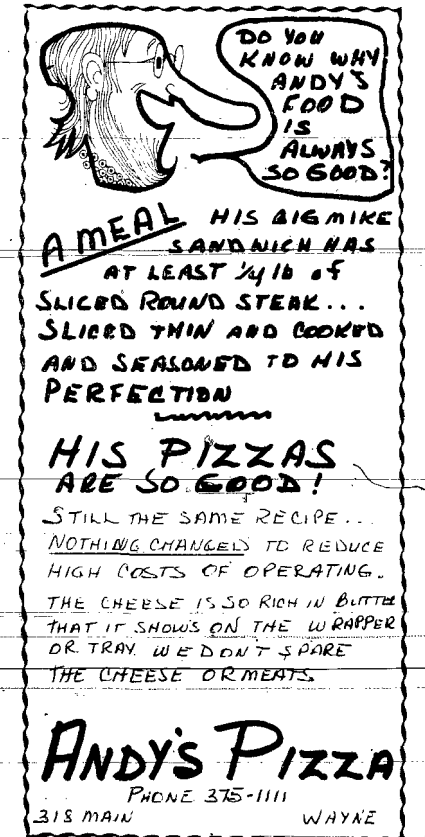 DO YOU
KNOW WHY
ANDY'S
FOOD
IS
ALWAYS
SO GOOD?
A MEAL
HIS BIG MIKE
SANDWICH HAS
AT LEAST 1/4 lb of
SLICED ROUND STEAK...
SLICED THIN AND COOKED
AND SEASONED TO HIS
PERFECTION
HIS PIZZAS
ARE SO GOOD!
STILL THE SAME RECIPE...
NOTHING CHANGED TO REDUCE
HIGH COSTS OF OPERATING.
THE CHEESE IS SO RICH IN BUTTER
THAT IT SHOWS ON THE WRAPPER
OR TRAY. WE DON'T SPARE
THE CHEESE OR MEATS.
ANDY'S PIZZA
PHONE 375-1111
318 MAIN WAYNE